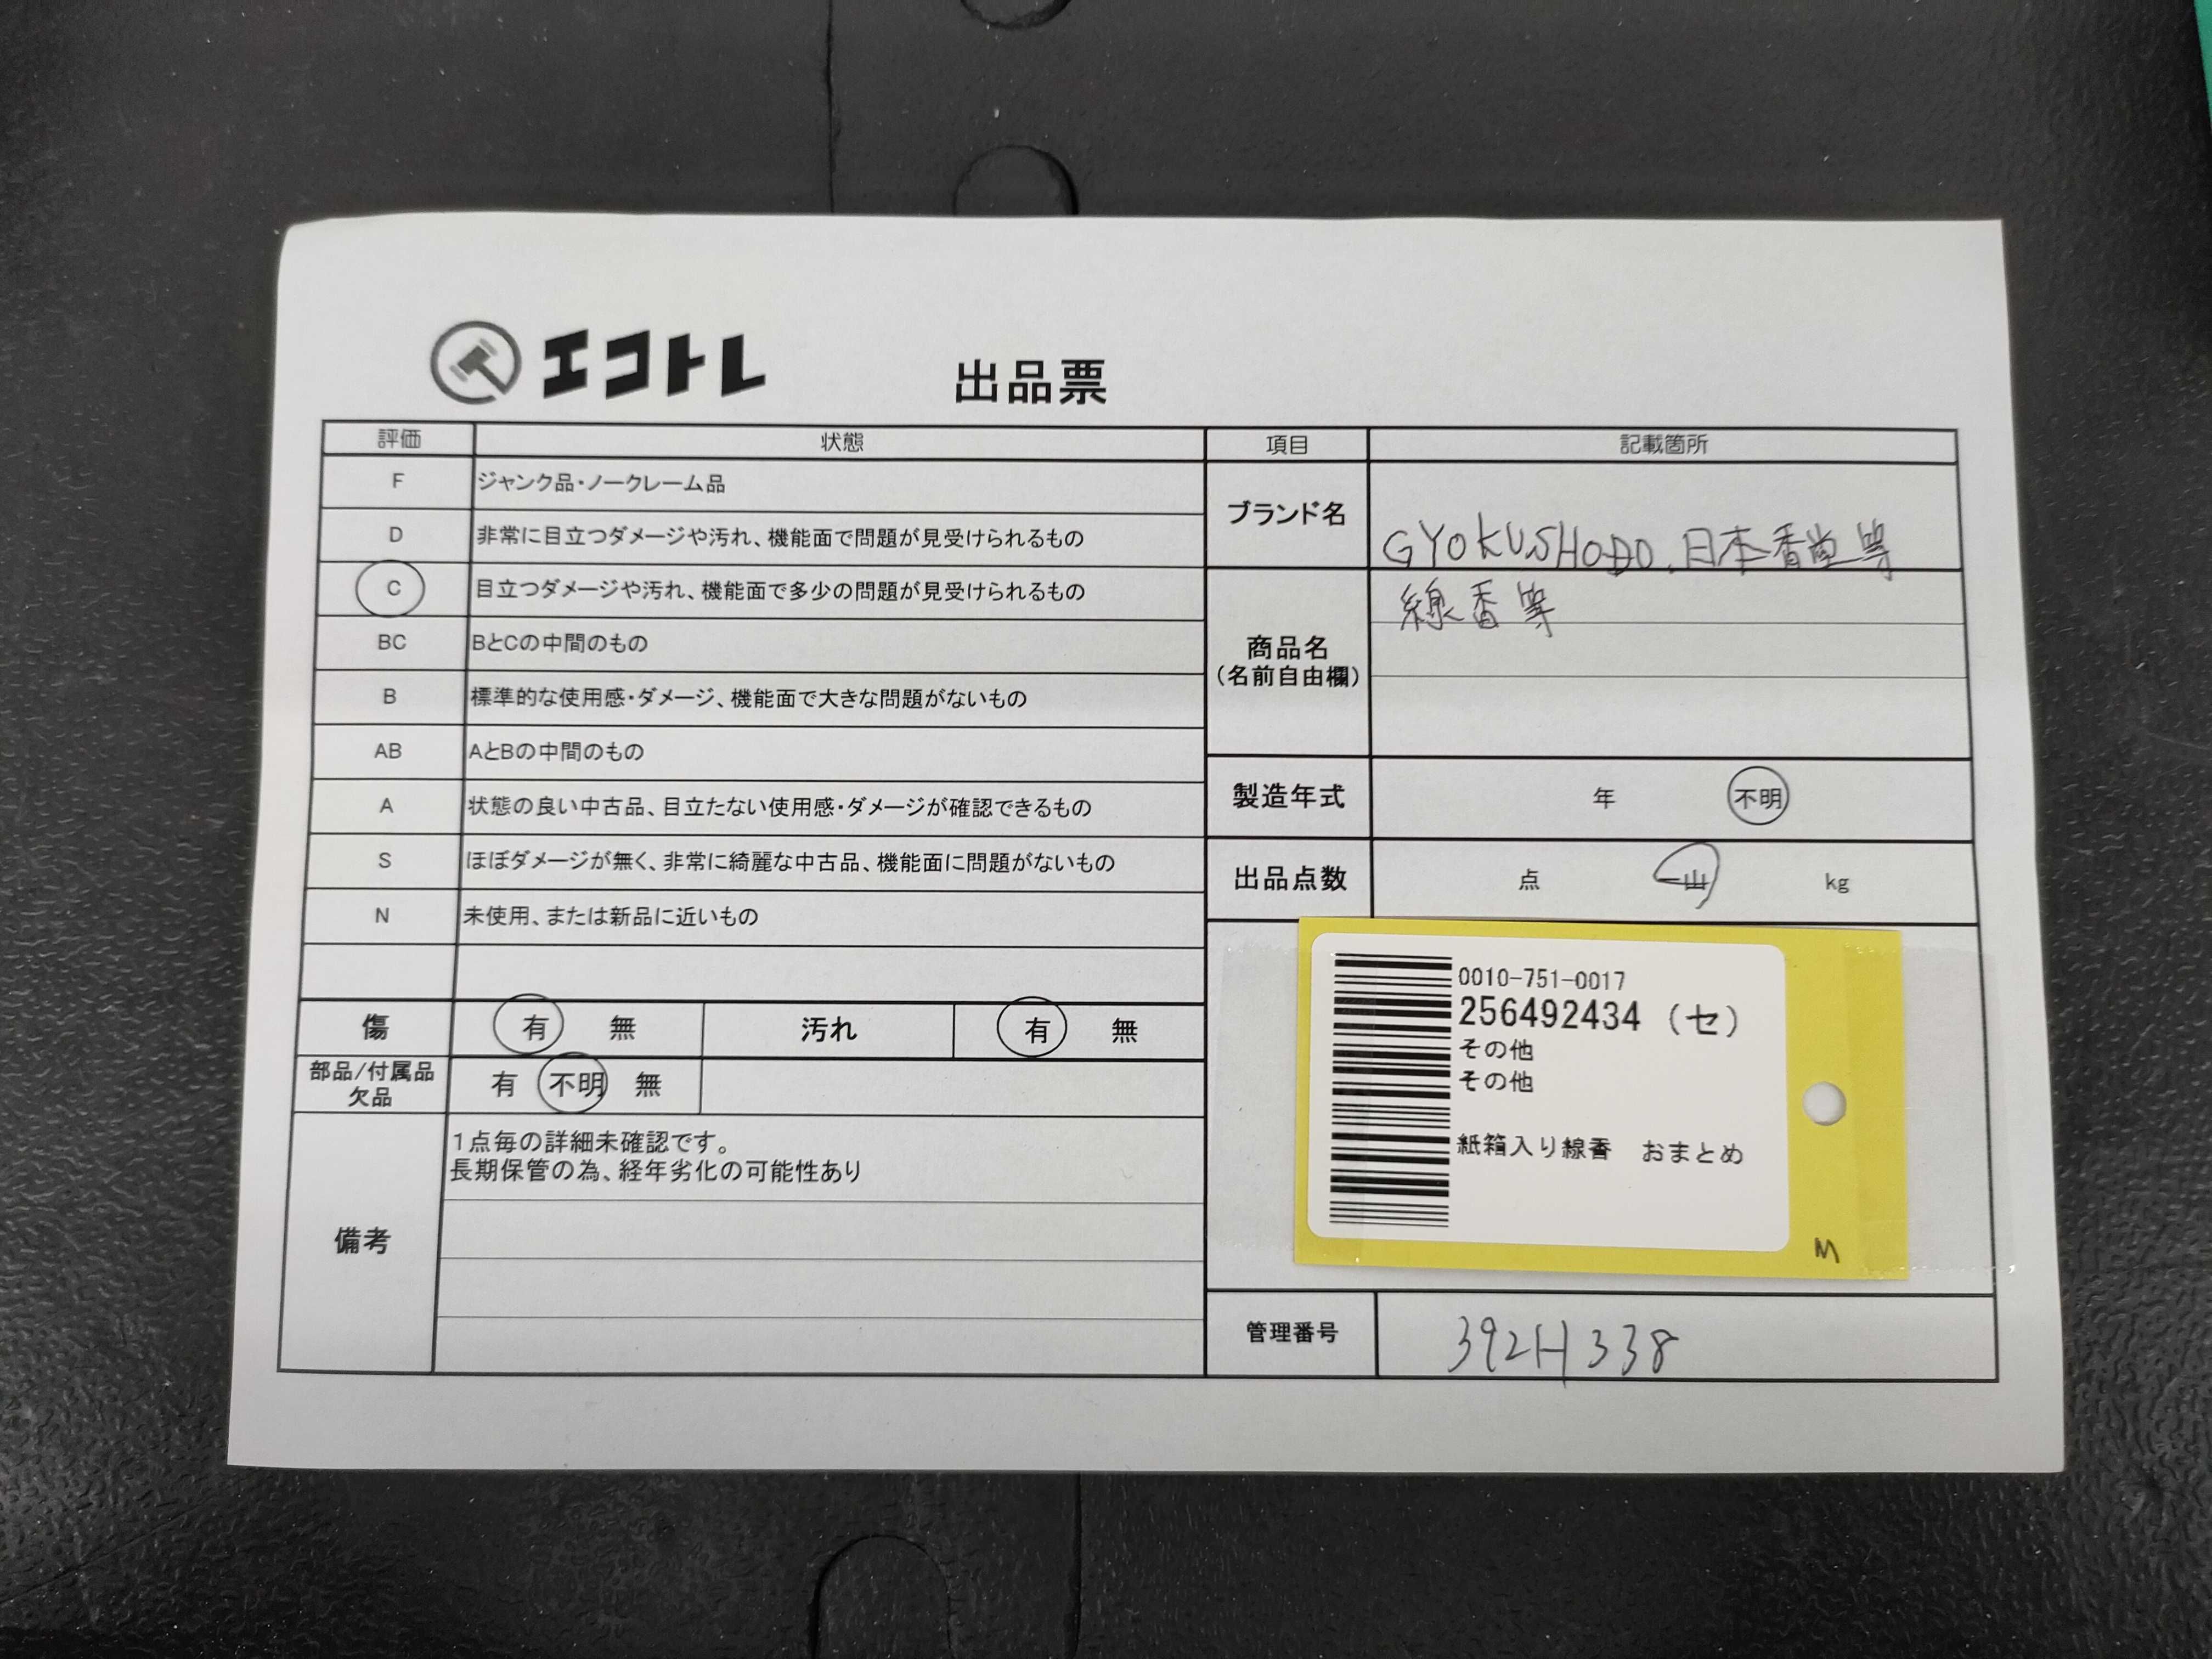 エコトレ
出品票
評価 状態
F ジャンク品・ノークレーム品
D 非常に目立つダメージや汚れ、機能面で問題が見受けられるもの
C 目立つダメージや汚れ、機能面で多少の問題が見受けられるもの
BC BとCの中間のもの
B 標準的な使用感・ダメージ、機能面で大きな問題がないもの
AB AとBの中間のもの
A 状態の良い中古品、目立たない使用感・ダメージが確認できるもの
S ほぼダメージが無く、非常に綺麗な中古品、機能面に問題がないもの
N 未使用、または新品に近いもの
傷 有 無 汚れ 有 無
部品/付属品
欠品
有 不明 無
備考
1点毎の詳細未確認です。
長期保管の為、経年劣化の可能性あり
項目 記載箇所
ブランド名
GYOKUSHODO、日本香堂等
商品名
(名前自由欄)
線香等
製造年式 年 不明
出品点数 点 一山 kg
0010-751-0017
256492434 (セ)
その他
その他
紙箱入り線香 おまとめ
M
管理番号 392H338